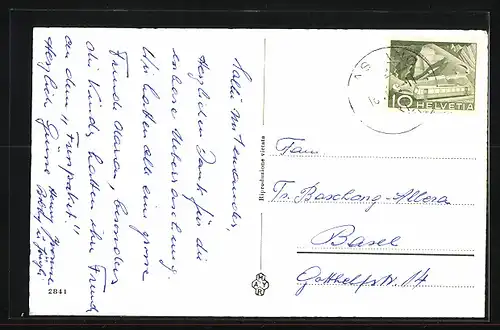 Salü mitenander,
Herzlichen Dank für die
liebe Ueberraschung.
Wir hatten alle eine grosse
Freude daran, besonders
die Kinder hatten ihre Freude
an dem "Fresspäckli"
Herzliche Grüsse
2841
Riproduzione vietata
10 HELVETIA
Fam.
Tr. Baschong-Allera
Basel
Gotthelfstr. 14